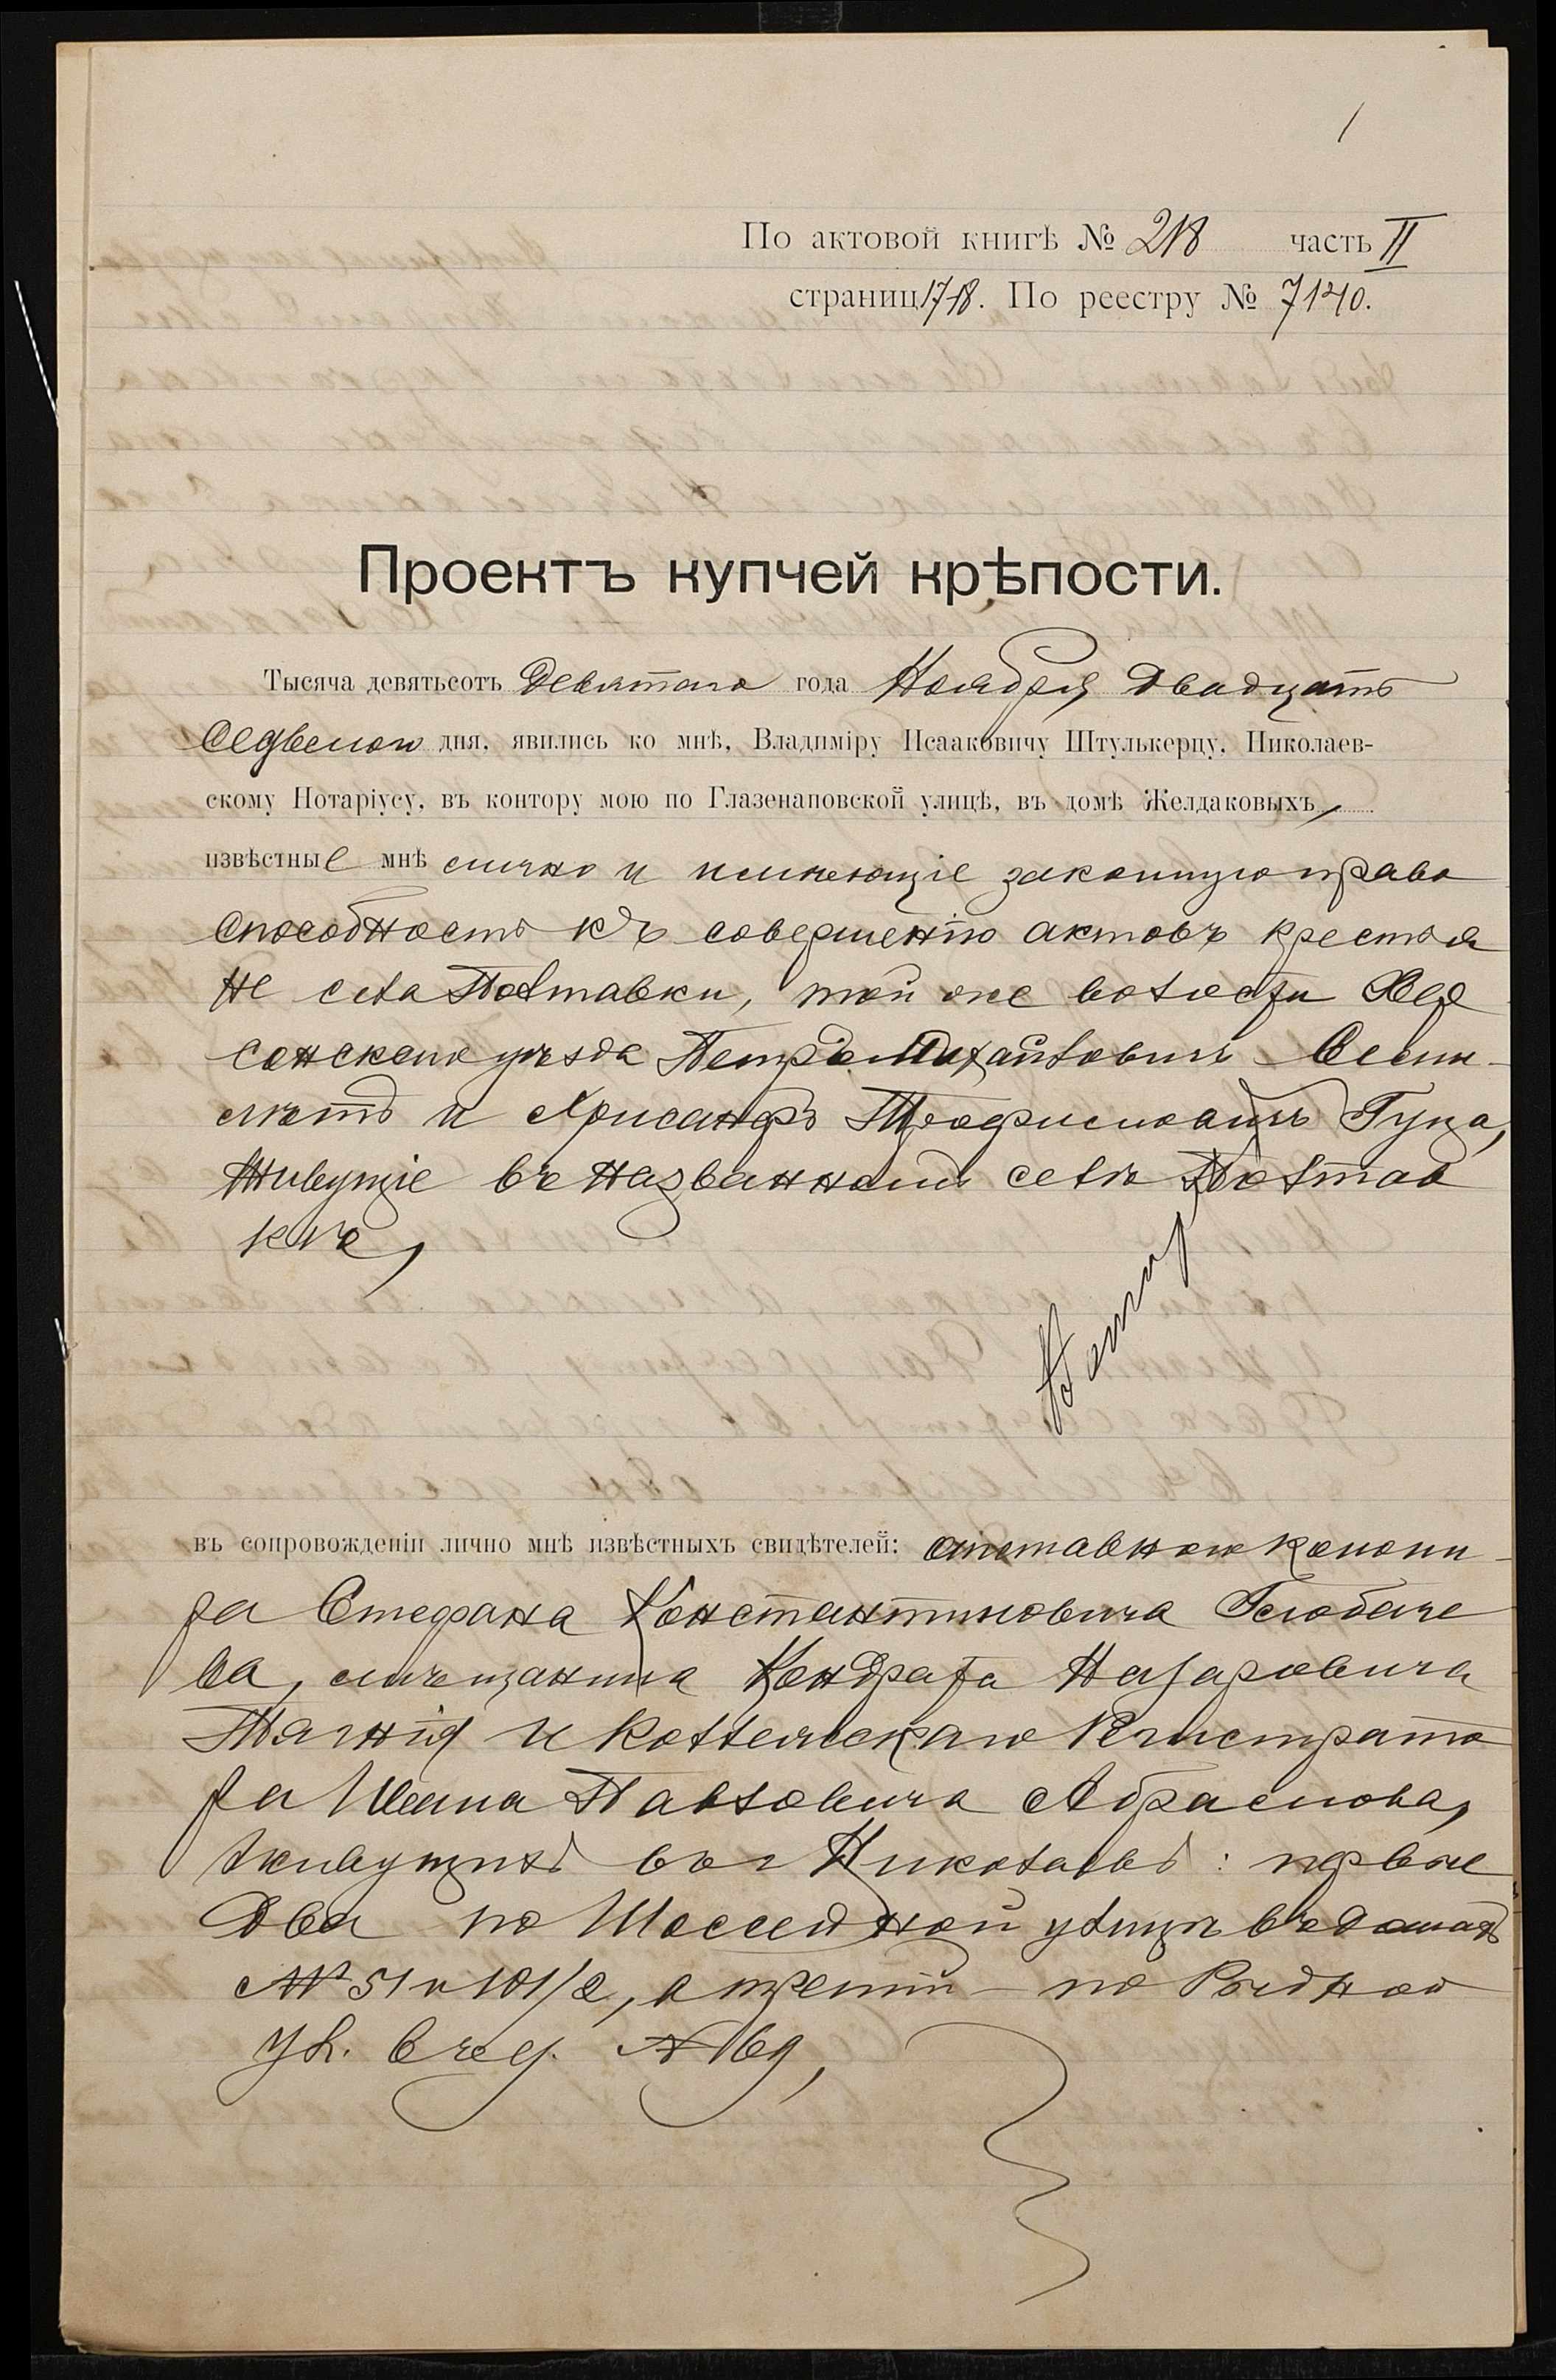 1
По актовой книгѣ № 218 часть II
страниц 17-18. По реестру № 7140.
Проектъ купчей крѣпости.
Тысяча девятьсотъ девятаго года Ноября двадцать
седьмого дня, явились ко мнѣ, Владиміру Исааковичу Штулькерцу, Николаев-
скому Нотаріусу, въ контору мою по Глазенаповской улицѣ, въ домѣ Желдаковыхъ,
извѣстные мнѣ лично и имѣющіе законную право
способность къ совершенію актовъ крестья
не села Полтавки, той же волости Хер
сонскаго уѣзда Петръ Михайловичъ
и Хрисанфъ Трофимовичъ Гуца,
живущіе въ названномъ селѣ Полтав
кѣ,
въ сопровожденіи лично мнѣ извѣстныхъ свидѣтелей: отставного канони-
ра Стефана Константиновича
ва, мѣщанина Кондрата Назаровича
Тягнія и Коллежскаго Регистрато
ра Ивана Павловича Абрамова,
живущихъ въ г Николаевѣ: первые
два по Шоссейной улицѣ въ домахъ
№ 51 и 101/2, а третій - по Рыдной
ул. въ д. № 69,